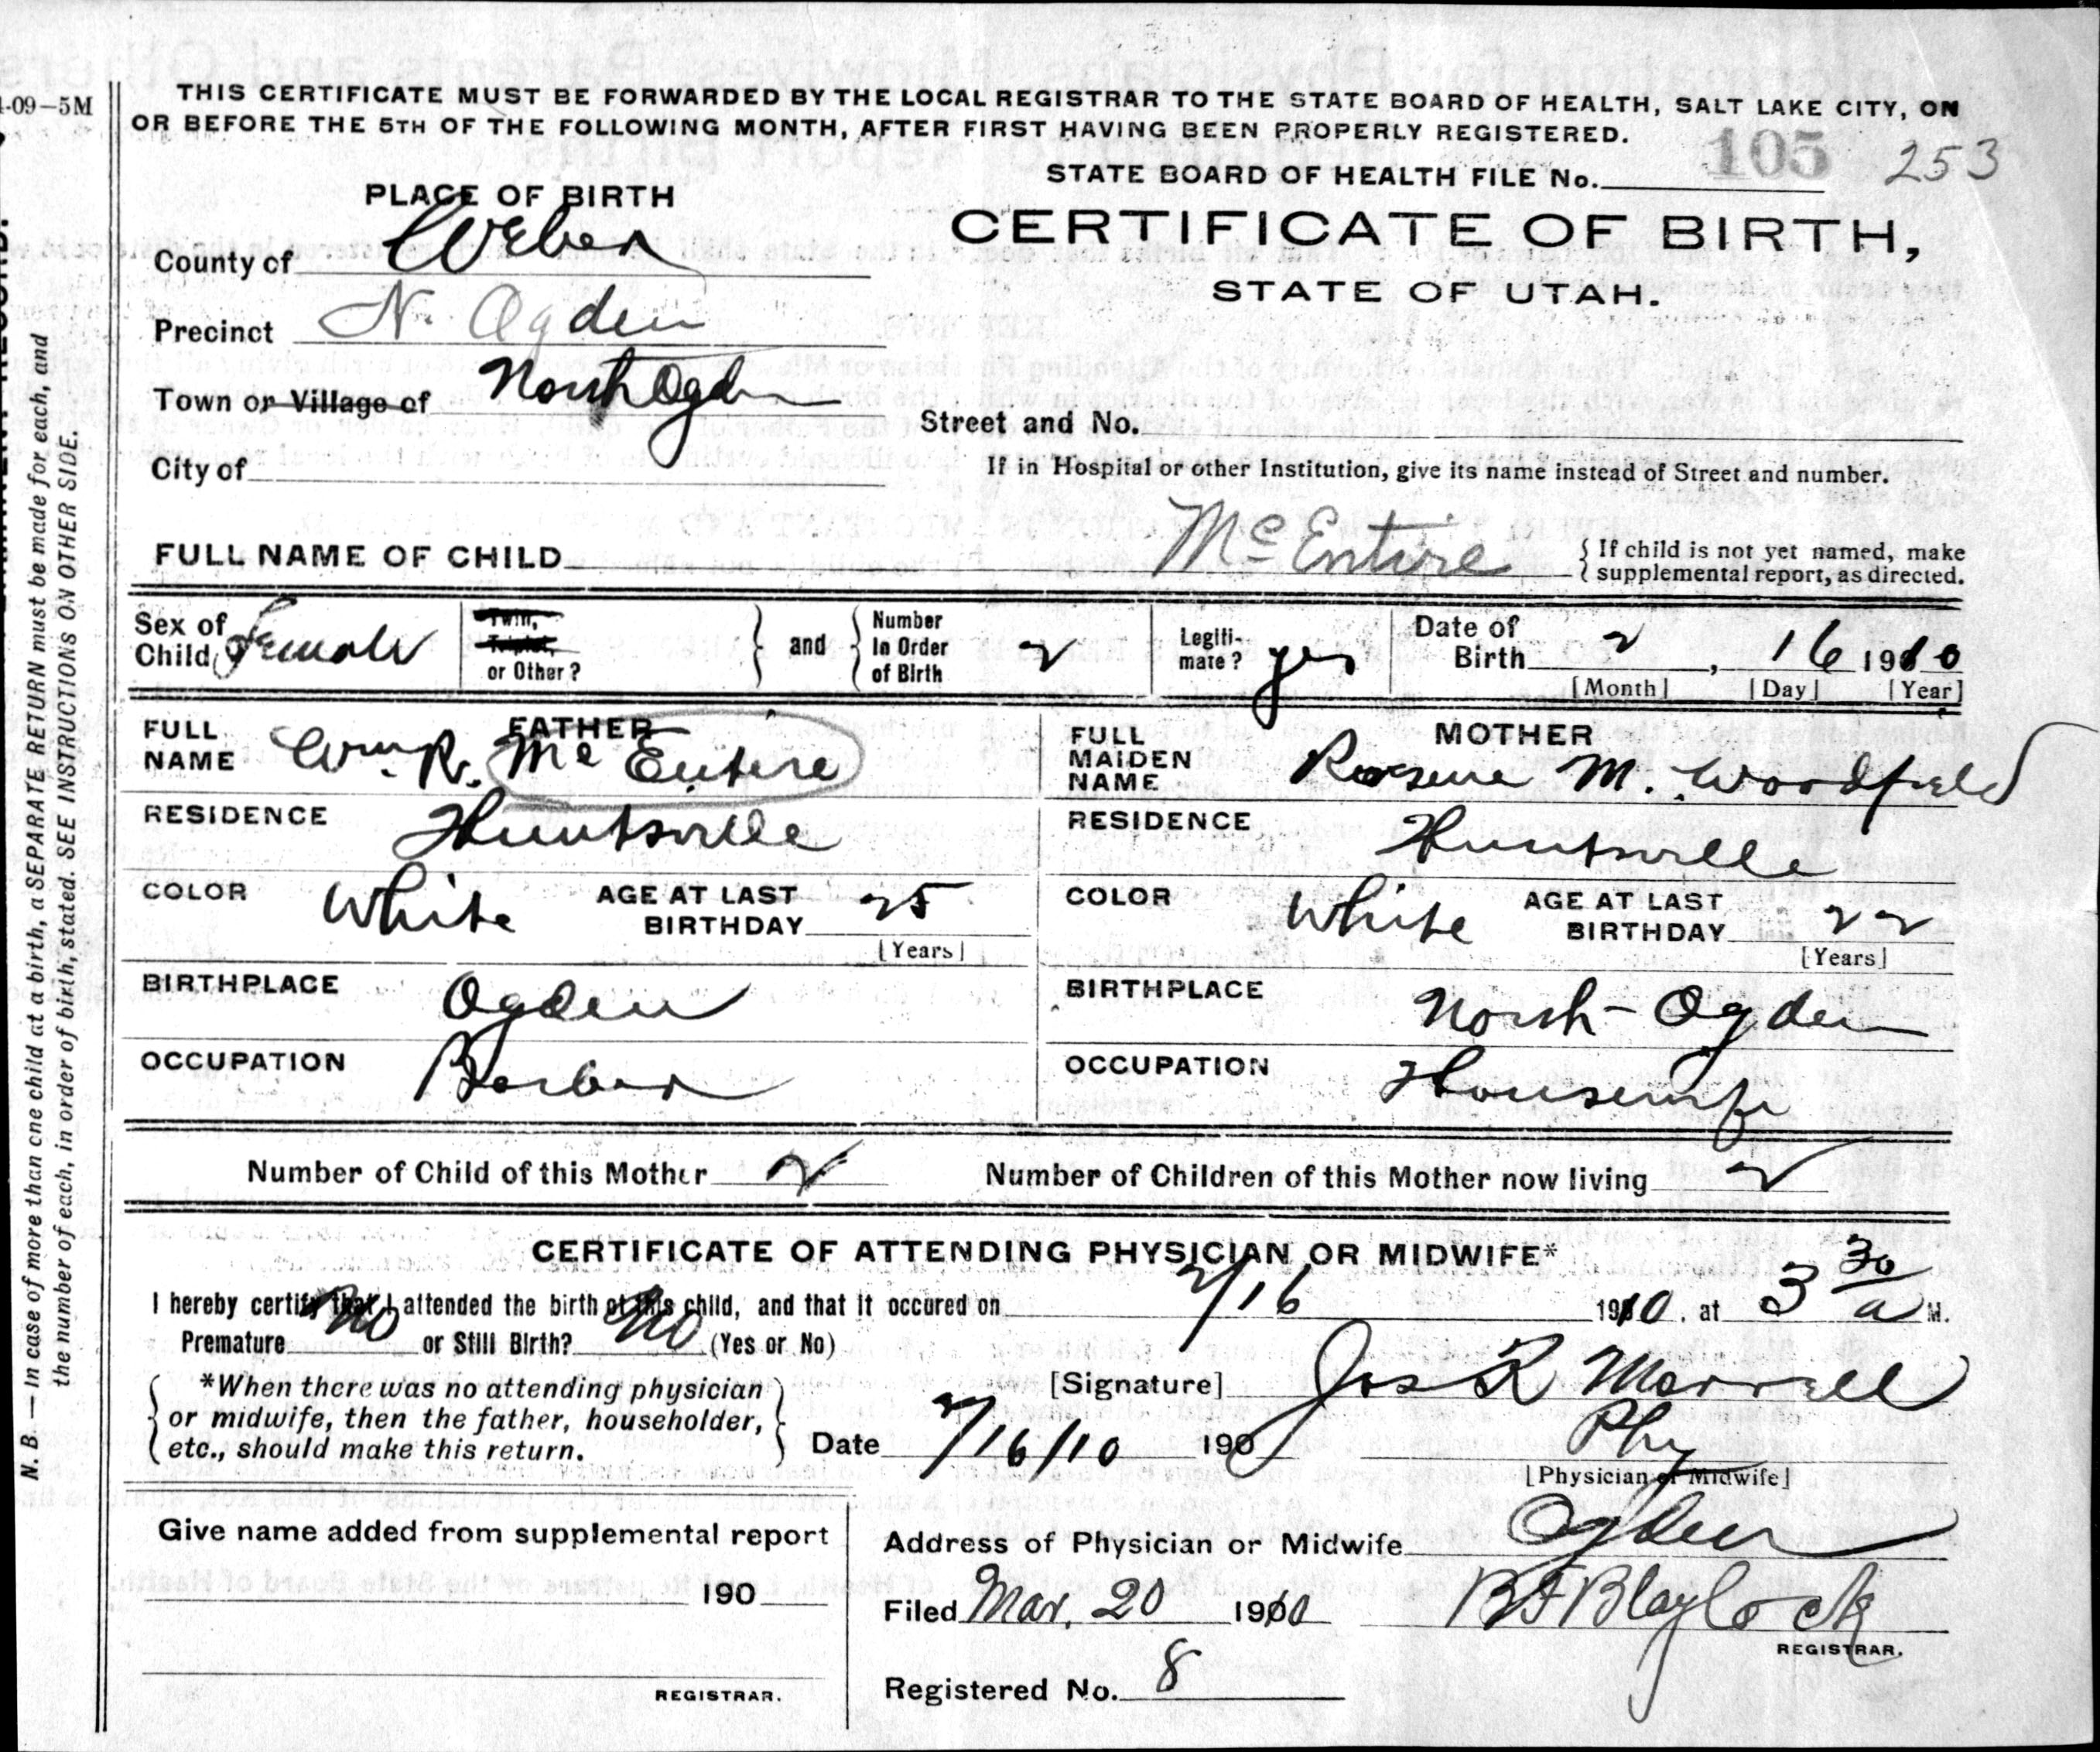 1-09—5M
THIS CERTIFICATE MUST BE FORWARDED BY THE LOCAL REGISTRAR TO THE STATE BOARD OF HEALTH, SALT LAKE CITY, ON
OR BEFORE THE 5TH OF THE FOLLOWING MONTH, AFTER FIRST HAVING BEEN PROPERLY REGISTERED.
105 253
STATE BOARD OF HEALTH FILE No.
PLACE OF BIRTH
CERTIFICATE OF BIRTH,
STATE OF UTAH.
County of Weber
Precinct N. Ogden
Town or Village of North Ogden
Street and No.
City of
If in Hospital or other Institution, give its name instead of Street and number.
FULL NAME OF CHILD McEntire
{ If child is not yet named, make
supplemental report, as directed.
Sex of Child Female
Twin, Triplet, or Other?
and
Number In Order of Birth 2
Legiti-mate? yes
Date of Birth 2, 16 1910
[Month] [Day] [Year]
FATHER
FULL NAME Wm. R. McEntire
RESIDENCE Huntsville
COLOR White AGE AT LAST BIRTHDAY 25
[Years]
BIRTHPLACE Ogden
OCCUPATION Barber
MOTHER
FULL MAIDEN NAME M. Woodfield
RESIDENCE Huntsville
COLOR White AGE AT LAST BIRTHDAY 22
[Years]
BIRTHPLACE North-Ogden
OCCUPATION Housewife
Number of Child of this Mother 2 Number of Children of this Mother now living 2
CERTIFICATE OF ATTENDING PHYSICIAN OR MIDWIFE*
I hereby certify that I attended the birth of this child, and that it occured on 2/16 1910, at 3 30 a M.
Premature No or Still Birth? No (Yes or No)
*When there was no attending physician
or midwife, then the father, householder,
etc., should make this return.
[Signature] Jos R Morrell
Date 2/16/10 190
Phy
[Physician or Midwife]
Give name added from supplemental report
190
REGISTRAR.
Address of Physician or Midwife Ogden
Filed Mar. 20 1910 B F Blaylock
REGISTRAR.
Registered No. 8
N. B.—In case of more than one child at a birth, a SEPARATE RETURN must be made for each, and
the number of each, in order of birth, stated. SEE INSTRUCTIONS ON OTHER SIDE.